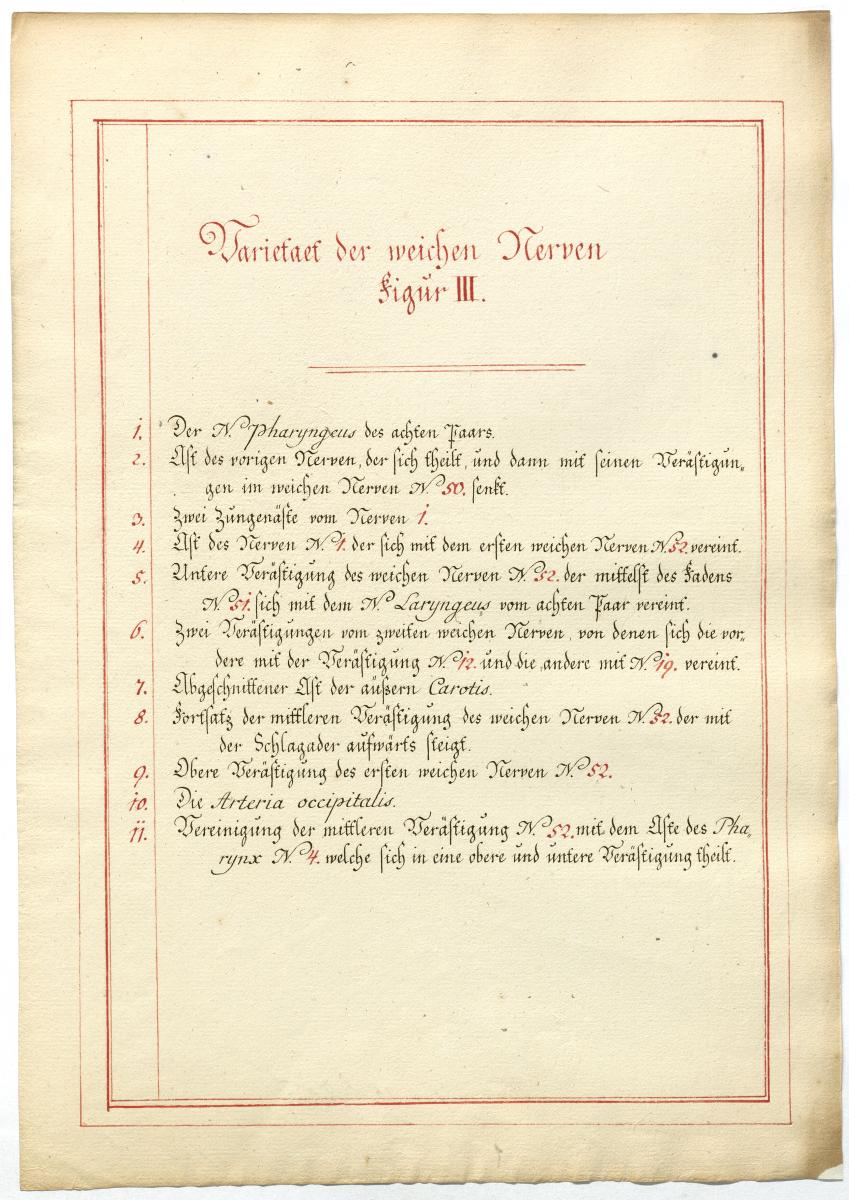 Varietaet der weichen Nerven
Figur III.
1. Der N.º Pharyngeus des achten Paars.
2. Ast des vorigen Nerven, der sich theilt, und dann mit seinen Verästigun-
gen im weichen Nerven N.º 50. senkt.
3. Zwei Zungenäste vom Nerven 1.
4. Ast des Nerven N.º 1. der sich mit dem ersten weichen Nerven N.º 52. vereint.
5. Untere Verästigung des weichen Nerven N.º 52. der mittelst des Fadens
N.º 51. sich mit dem N.º Laryngeus vom achten Paar vereint.
6. Zwei Verästigungen vom zweiten weichen Nerven, von denen sich die vor-
dere mit der Verästigung N.º 12. und die andere mit N.º 19. vereint.
7. Abgeschnittener Ast der äußern Carotis.
8. Fortsatz der mittleren Verästigung des weichen Nerven N.º 52. der mit
der Schlagader aufwärts steigt.
9. Obere Verästigung des ersten weichen Nerven N.º 52.
10. Die Arteria occipitalis.
11. Vereinigung der mittleren Verästigung N.º 52. mit dem Aste des Pha-
rynx N.º 4. welche sich in eine obere und untere Verästigung theilt.